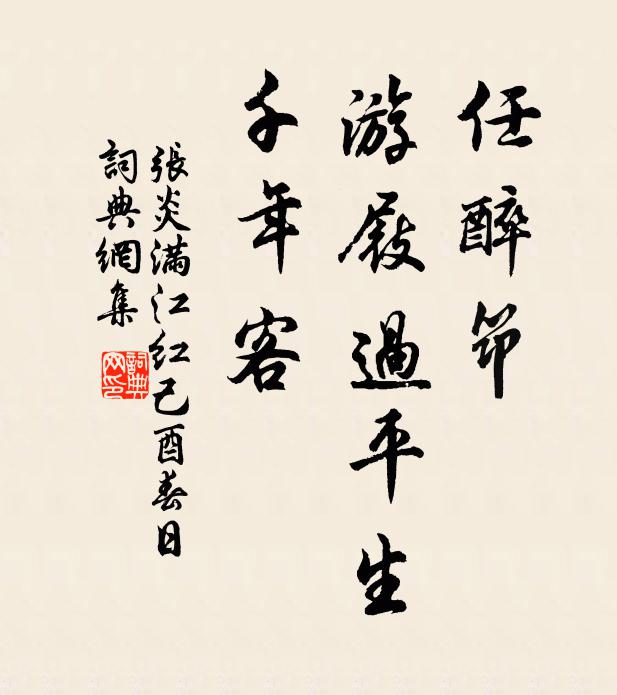 任醉筇
游屐過平生
千年客
張炎滿江紅己酉春日
詞典網集
詞典
网印